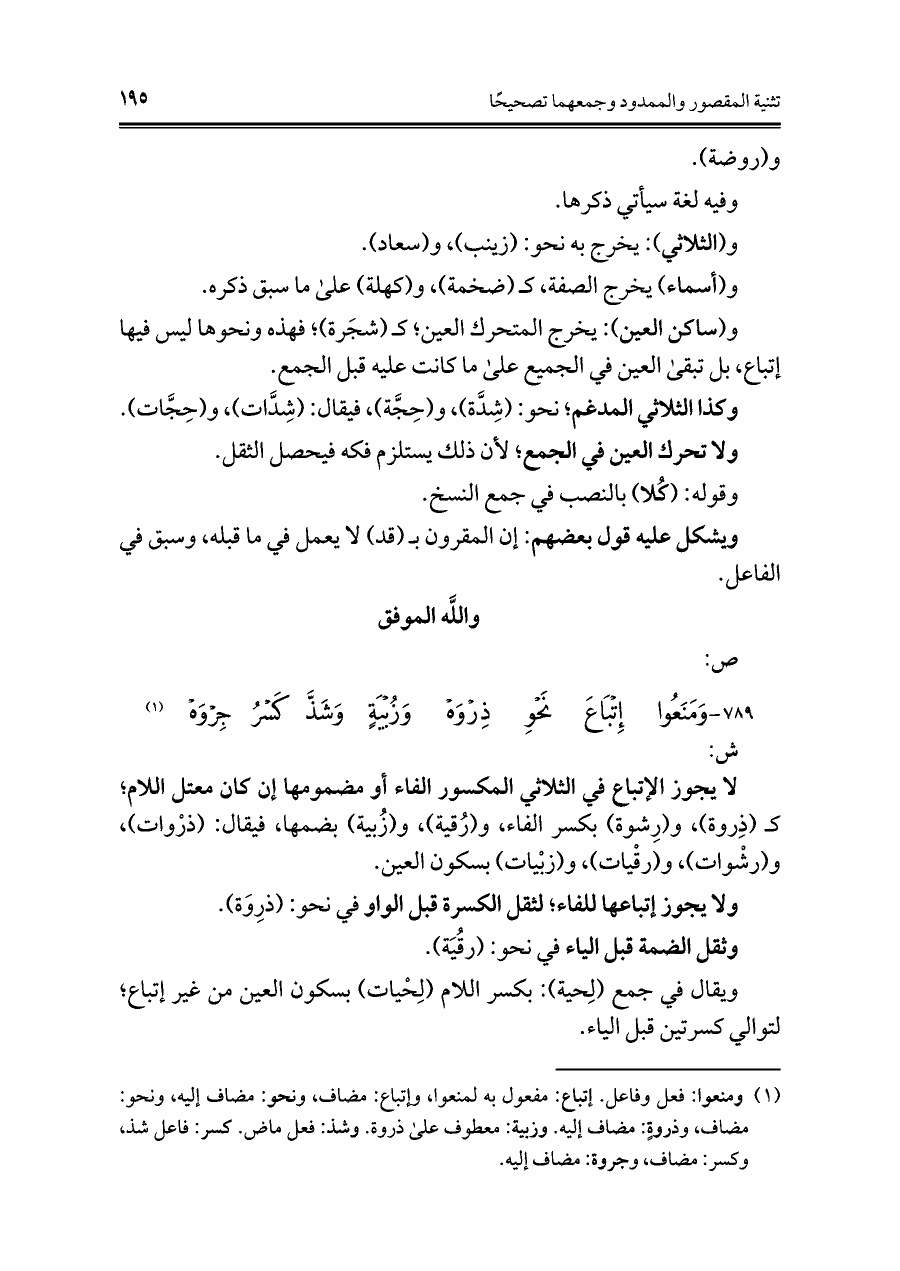 تثنية المقصور والممدود وجمعهما تصحيحًا ١٩٥
و(روضة).
وفيه لغة سيأتي ذكرها.
و(الثلاثي): يخرج به نحو: (زينب)، و(سعاد).
و(أسماء) يخرج الصفة، كـ (ضخمة)، و(كهلة) علىٰ ما سبق ذكره.
و(ساكن العين): يخرج المتحرك العين؛ كـ (شجَرة)؛ فهذه ونحوها ليس فيها
إتباع، بل تبقىٰ العين في الجميع علىٰ ما كانت عليه قبل الجمع.
وكذا الثلاثي المدغم؛ نحو: (شِدَّة)، و(حِجَّة)، فيقال: (شِدَّات)، و(حِجَّات).
ولا تحرك العين في الجمع؛ لأن ذلك يستلزم فكه فيحصل الثقل.
وقوله: (كُلا) بالنصب في جمع النسخ.
ويشكل عليه قول بعضهم: إن المقرون بـ (قد) لا يعمل في ما قبله، وسبق في
الفاعل.
واللَّه الموفق
ص:
٧٨٩-وَمَنَعُوا إِتْبَاعَ نَحْوِ ذِرْوَهْ وَزُبْيَةٍ وَشَذَّ كَسْرُ جِرْوَهْ (١)
ش:
لا يجوز الإتباع في الثلاثي المكسور الفاء أو مضمومها إن كان معتل اللام؛
كـ (ذِروة)، و(رِشوة) بكسر الفاء، و(رُقية)، و(زُبية) بضمها، فيقال: (ذرْوات)،
و(رشْوات)، و(رقْيات)، و(زبْيات) بسكون العين.
ولا يجوز إتباعها للفاء؛ لثقل الكسرة قبل الواو في نحو: (ذرِوَة).
وثقل الضمة قبل الياء في نحو: (رقُيَة).
ويقال في جمع (لِحية): بكسر اللام (لِحْيات) بسكون العين من غير إتباع؛
لتوالي كسرتين قبل الياء.
(١) ومنعوا: فعل وفاعل. إتباع: مفعول به لمنعوا، وإتباع: مضاف، ونحو: مضاف إليه، ونحو:
مضاف، وذروةٍ: مضاف إليه. وزبية: معطوف علىٰ ذروة. وشذ: فعل ماض. كسر: فاعل شذ،
وكسر: مضاف، وجروة: مضاف إليه.